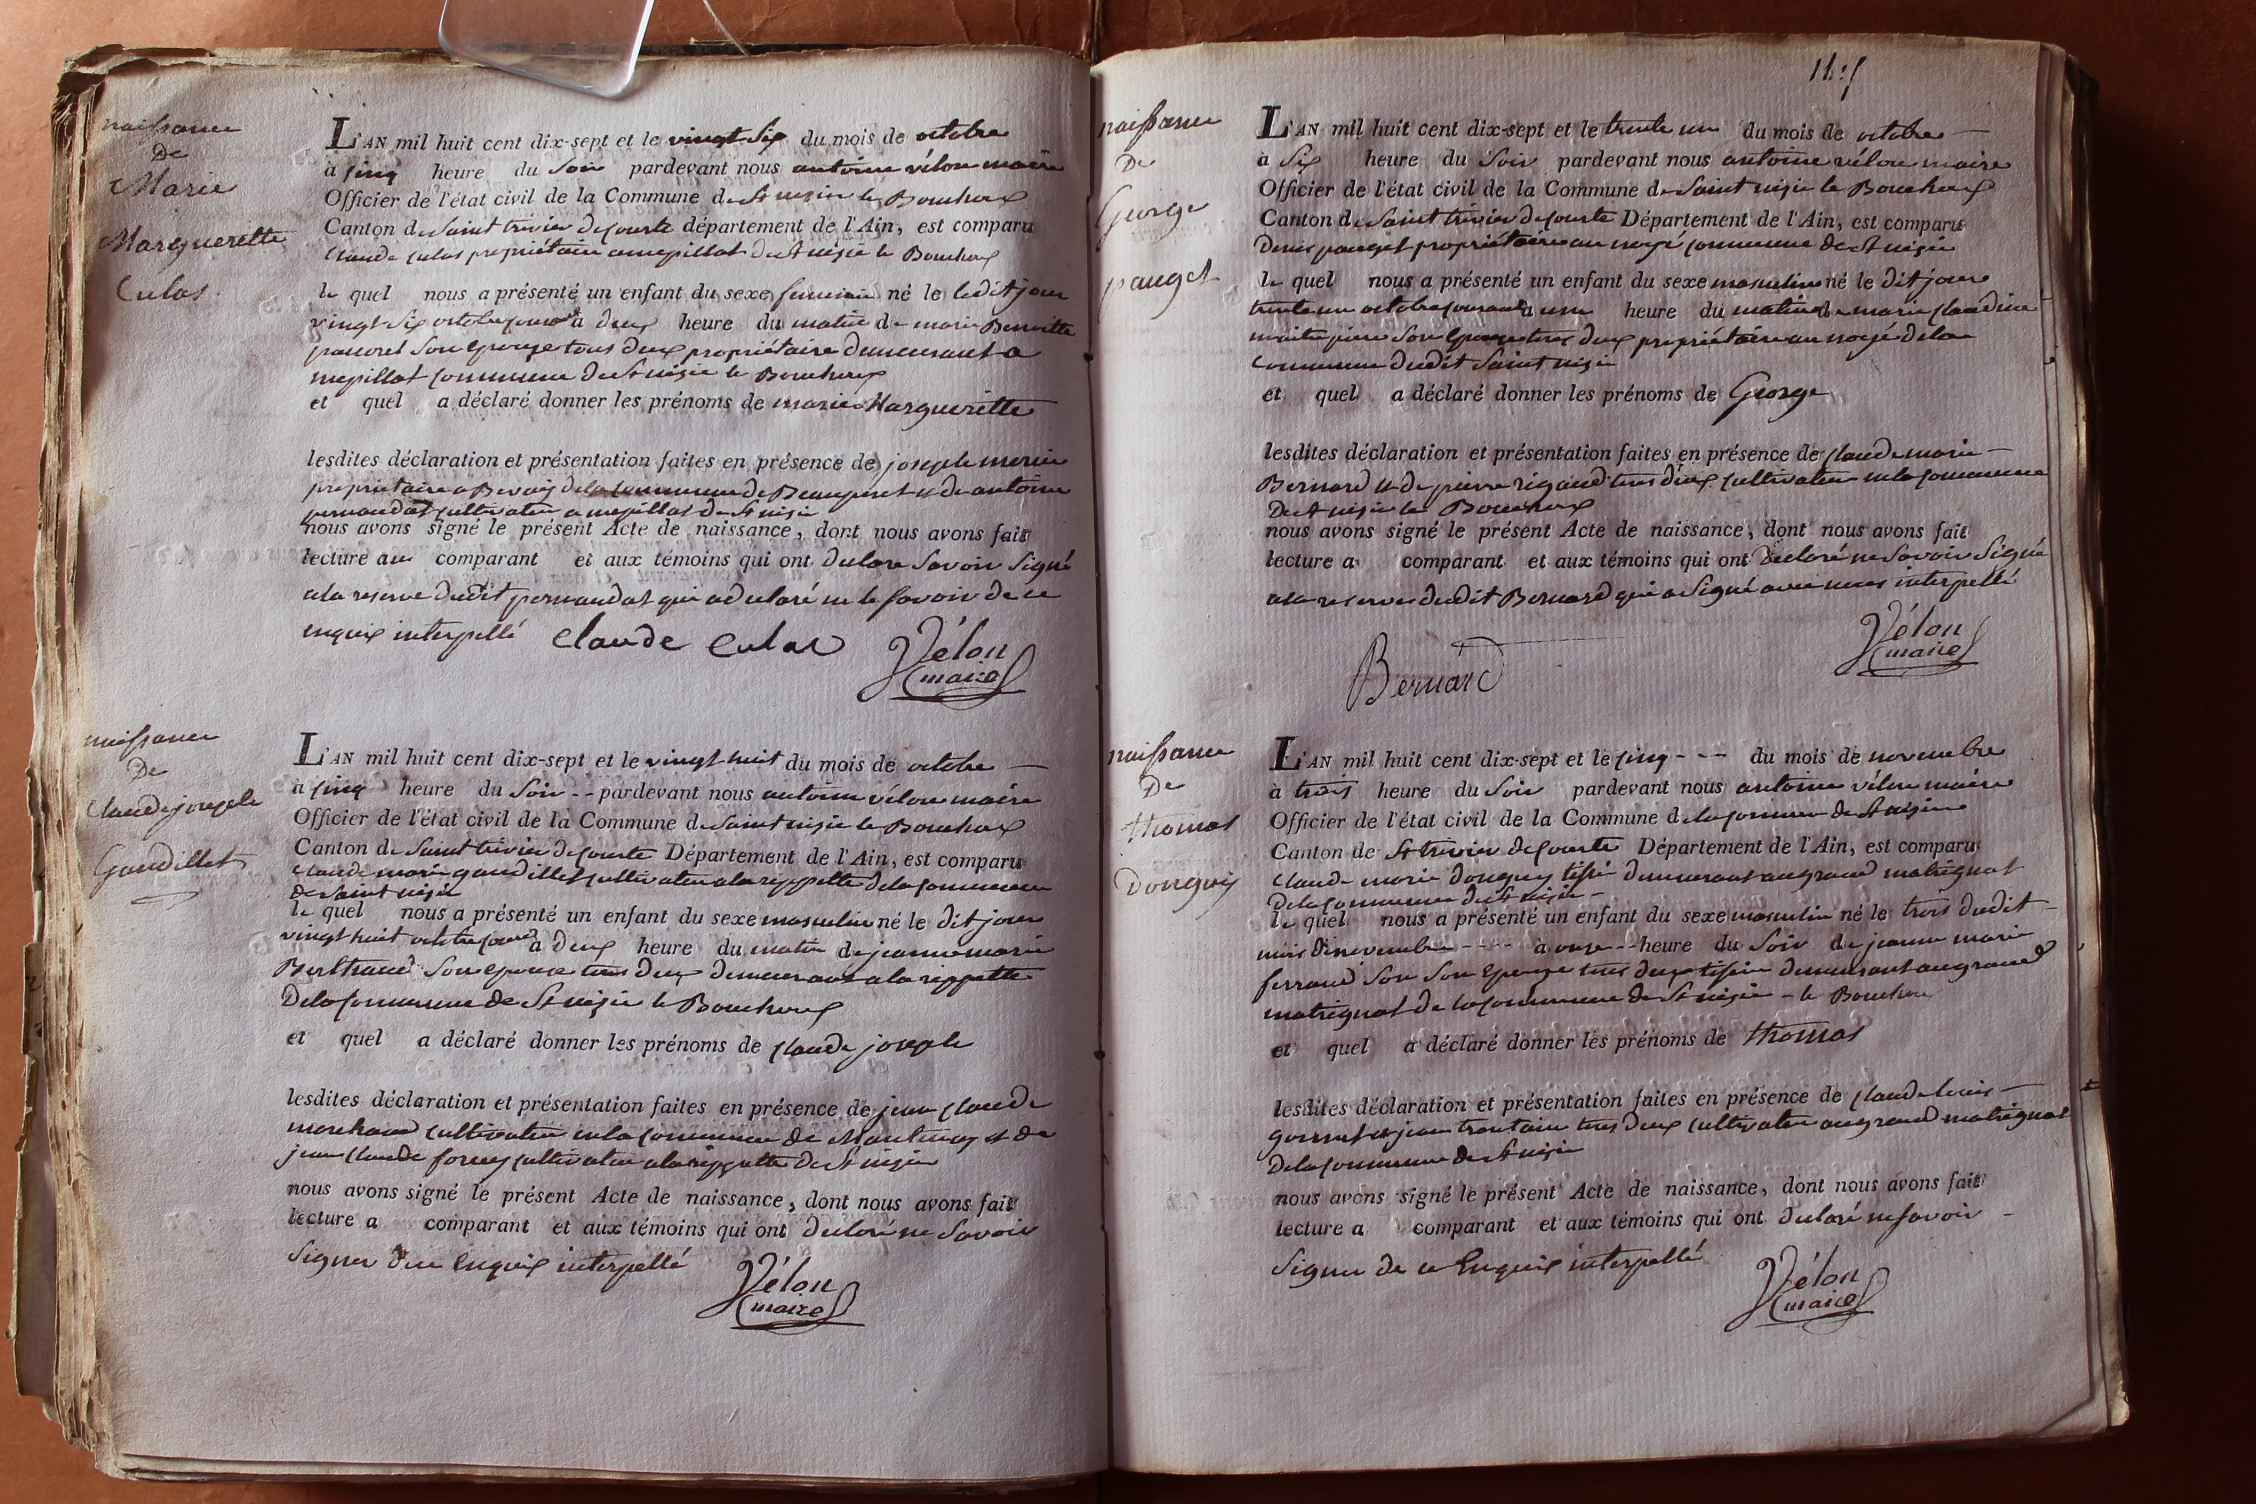 naissance
De
Marie
Marguerette
Culas
L'AN mil huit cent dix-sept et le vingt six du mois de octobre
à cinq heure du soir pardevant nous antoine vélon maire
Officier de l'état civil de la Commune de St nizie le Bouchoux
Canton de Saint trivier de courte département de l'Ain, est comparu
Claude culas propriétaire a mepillat de St nizie le Bouchoux
le quel nous a présenté un enfant du sexe feminin né le ledit jour
vingt six octobre courant à deux heure du matin de marie Benoitte
son epouse tous deux propriétaire demeurant a
mepillat commune de St nizie le Bouchoux
et quel a déclaré donner les prénoms de marie Marguerette
lesdites déclaration et présentation faites en présence de joseph
propriétaire a de la commune de Beaupont et de antoine
pernaudat cultivateur a mepillat de St nizie
nous avons signé le présent Acte de naissance, dont nous avons fait
lecture au comparant et aux témoins qui ont declare savoir signé
a la reserve dudit pernaudat qui a declaré ne le savoir de ce
enquis interpellé Claude Culas Vélon
maire
naissance
De
Claude joseph
Gaudillet
L'AN mil huit cent dix-sept et le vingt huit du mois de octobre
à cinq heure du soir pardevant nous antoine vélon maire
Officier de l'état civil de la Commune de Saint nizie le Bouchoux
Canton de Saint trivier de courte Département de l'Ain, est comparu
Claude marie gaudillet cultivateur a la rippette de la commune
de Saint nizie
le quel nous a présenté un enfant du sexe masculin né le dit jour
vingt huit octobre courant à deux heure du matin de jeanne marie
Berthaud son epouse tous deux demeurant a la rippette
De la commune de St nizie le Bouchoux
et quel a déclaré donner les prénoms de Claude joseph
lesdites déclaration et présentation faites en présence de jean Claude
marchand cultivateur en la commune de et de
jean Claude cultivateur a la rippette de St nizie
nous avons signé le présent Acte de naissance, dont nous avons fait
lecture a comparant et aux témoins qui ont declaré ne savoir
signer de ce Enquis interpellé
Vélon
maire
naissance
De
George
pauget
L'AN mil huit cent dix-sept et le trente un du mois de octobre
à six heure du soir pardevant nous antoine vélon maire
Officier de l'état civil de la Commune de Saint nizie le Bouchoux
Canton de Saint trivier de courte Département de l'Ain, est comparu
Denis pauget propriétaire au noyé commune de St nizie
le quel nous a présenté un enfant du sexe masculin né le dit jour
trente un octobre courant à une heure du matin de marie Claudine
son epouse tous deux propriétaire au noyé de la
commune dudit Saint nizie
et quel a déclaré donner les prénoms de George
lesdites déclaration et présentation faites en présence de Claude marie
Bernard et de pierre rigaud tous deux cultivateur en la commune
De St nizie le Bouchoux
nous avons signé le présent Acte de naissance, dont nous avons fait
lecture a comparant et aux témoins qui ont declaré ne savoir signé
a la reserve dudit Bernard qui a signé avec nous interpellé
Vélon
maire
Bernard
naissance
De
thomas
Donguy
L'AN mil huit cent dix-sept et le cinq du mois de novembre
à trois heure du soir pardevant nous antoine vélon maire
Officier de l'état civil de la Commune de la commune de St nizie
Canton de St trivier de courte Département de l'Ain, est comparu
Claude marie donguy tissié demeurant au grand matrignat
De la commune de St nizie
le quel nous a présenté un enfant du sexe masculin né le trois dudit
mois de novembre à onze heure du soir de jeanne marie
ferrand son son Epouse tous deux tissié demeurant au grand
matrignat de la commune de St nizie le Bouchoux
et quel a déclaré donner les prénoms de thomas
lesdites déclaration et présentation faites en présence de Claude louis
et jean tous deux cultivateur au grand matrignat
De la commune de St nizie
nous avons signé le présent Acte de naissance, dont nous avons fait
lecture a comparant et aux témoins qui ont declaré ne savoir
signer de ce Enquis interpellé
Vélon
maire